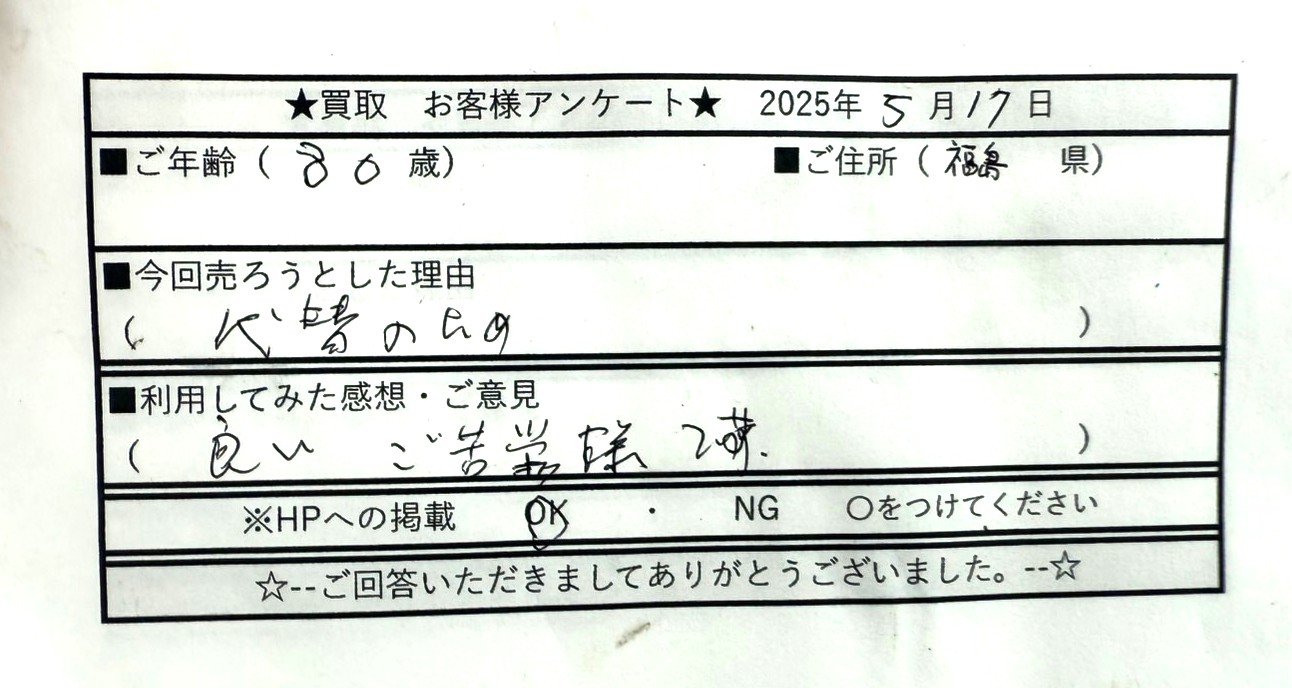 ★買取 お客様アンケート★ 2025年 5月17日
■ご年齢(80歳) ■ご住所(福島 県)
■今回売ろうとした理由
(代替のため)
■利用してみた感想・ご意見
(良い ご苦労様です.)
※HPへの掲載 OK ・ NG ○をつけてください
☆--ご回答いただきましてありがとうございました。--☆